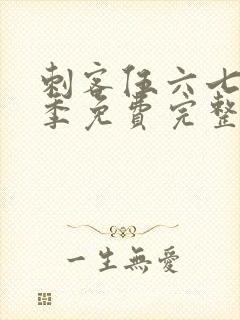 刺客伍六七
季免費完整
一生無愛